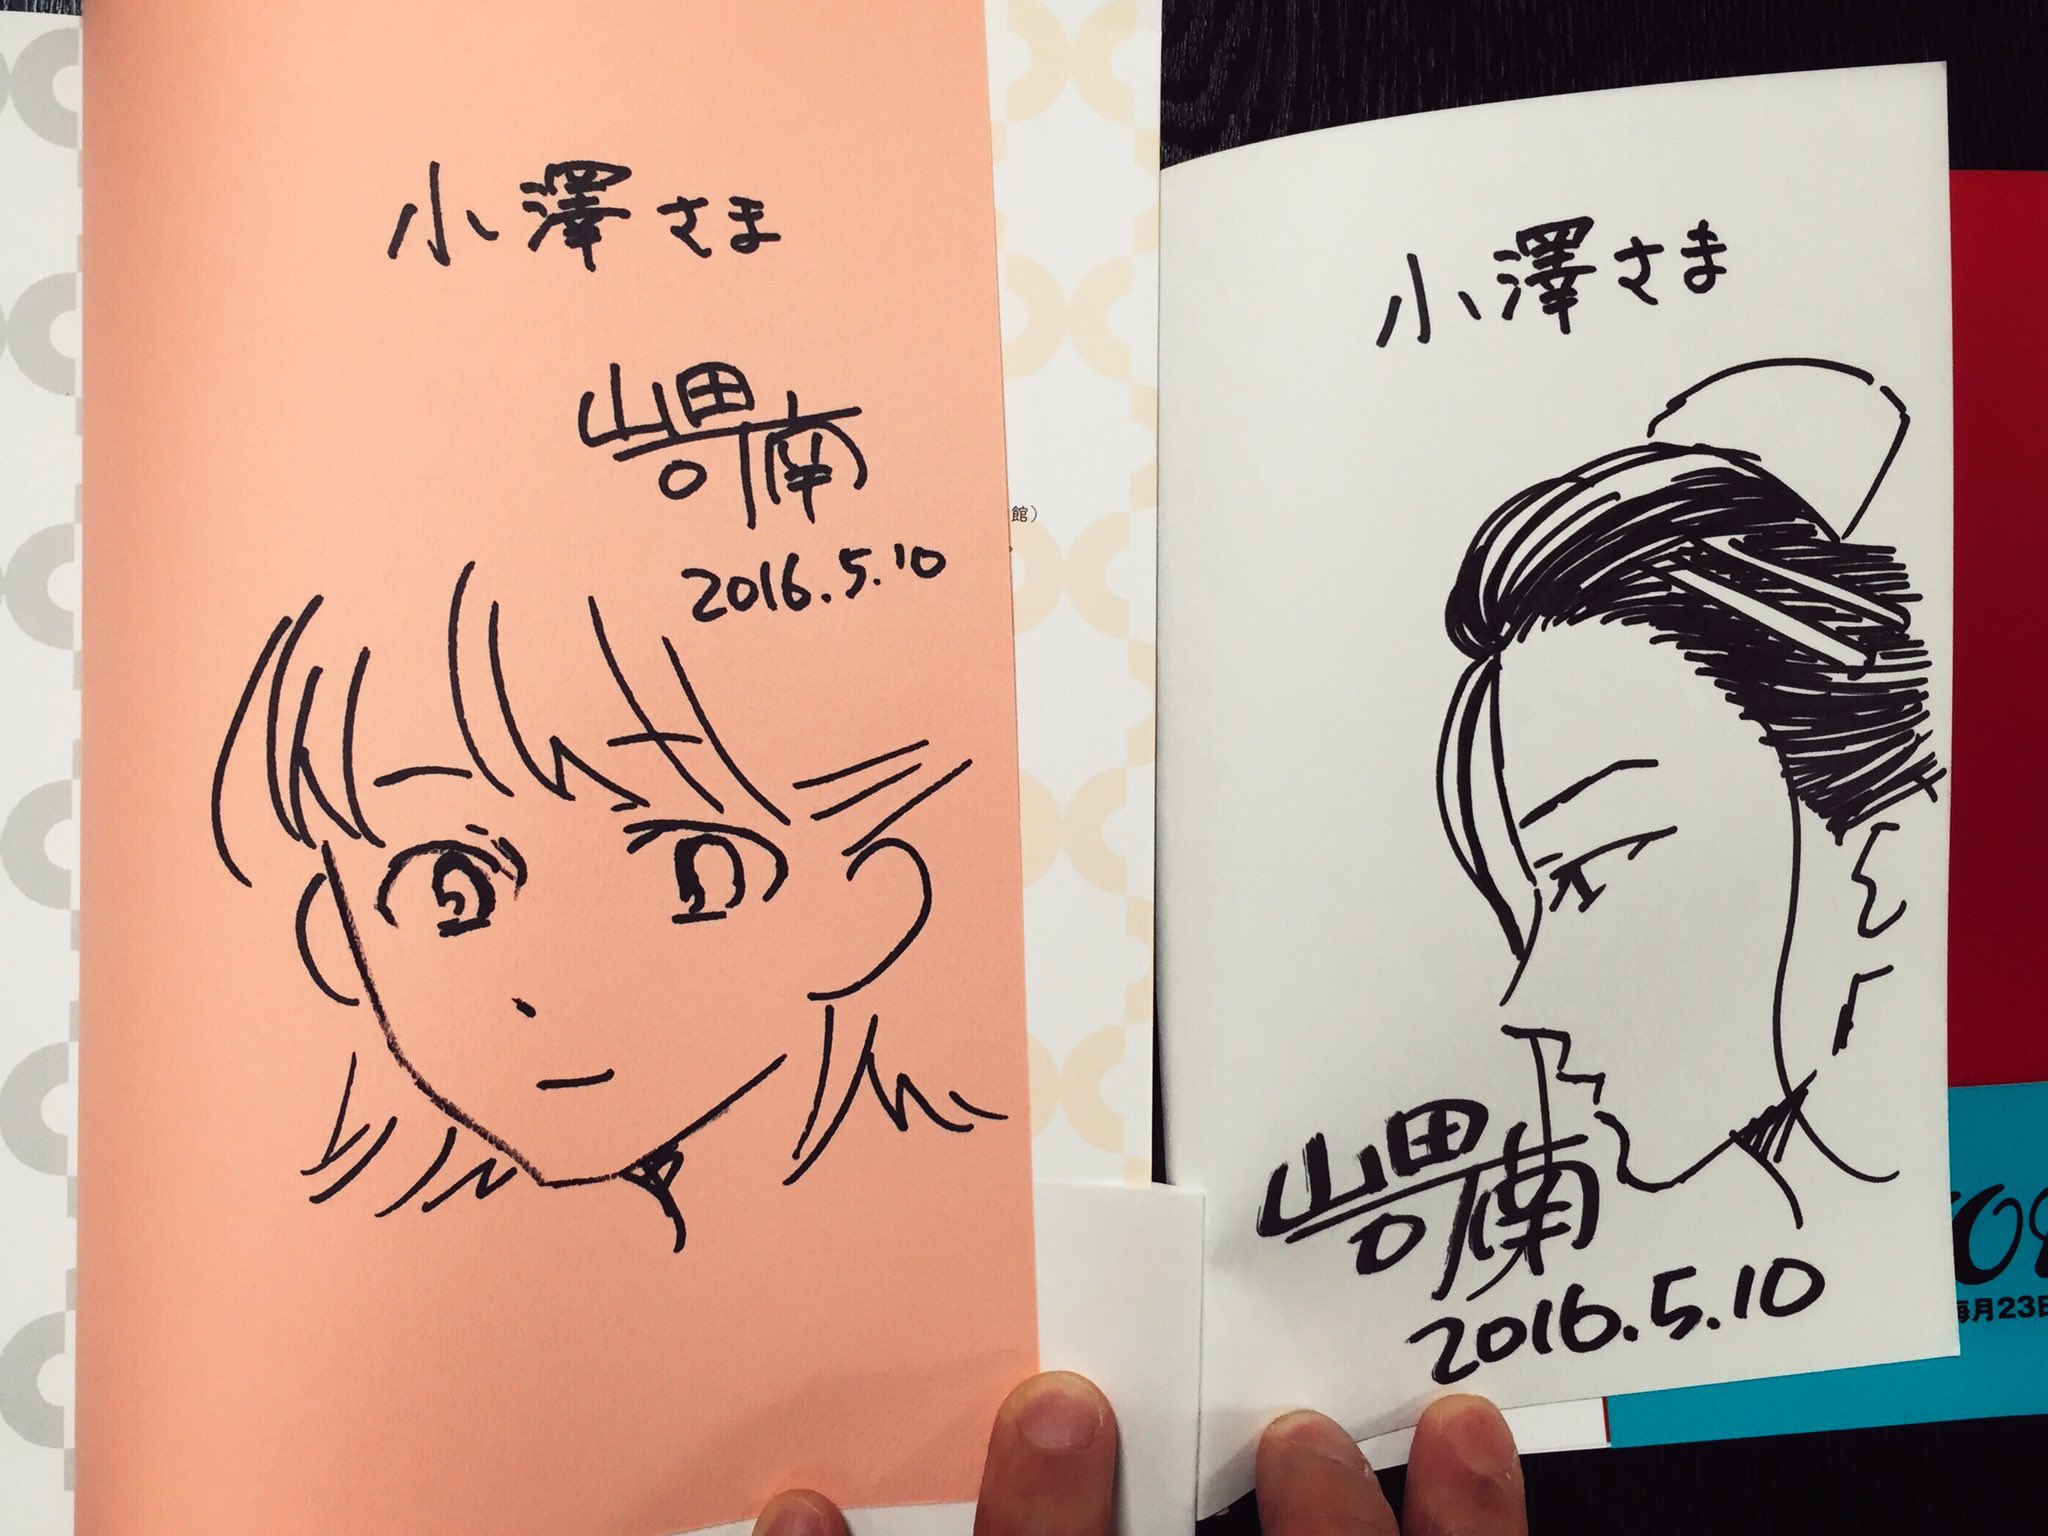 小澤さま
山田可南
2016.5.10
館）
小澤さま
山田可南
2016.5.10
毎月23日